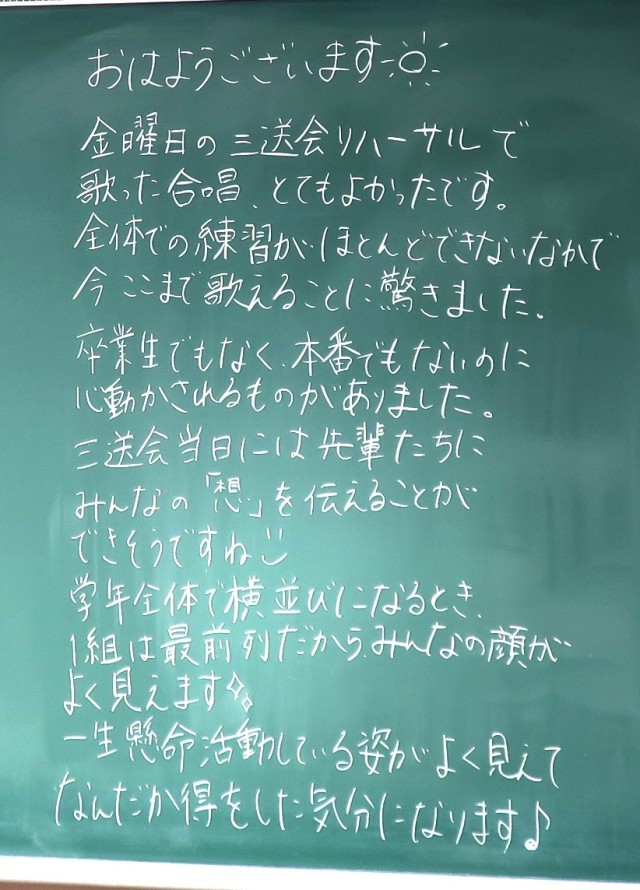 おはようございます
金曜日の三送会リハーサルで
歌った合唱、とてもよかったです。
全体での練習がほとんどできないなかで
今ここまで歌えることに驚きました。
卒業生でもなく、本番でもないのに
心動かされるものがありました。
三送会当日には先輩たちに
みんなの「想」を伝えることが
できそうですね
学年全体で横並びになるとき、
1組は最前列だから、みんなの顔が
よく見えます
一生懸命活動している姿がよく見えて
なんだか得をした気分になります♪